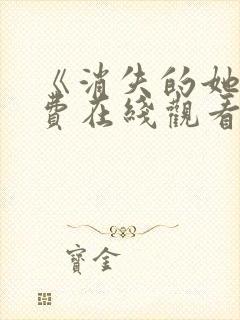 《消失的她
費在綫觀看
寶金